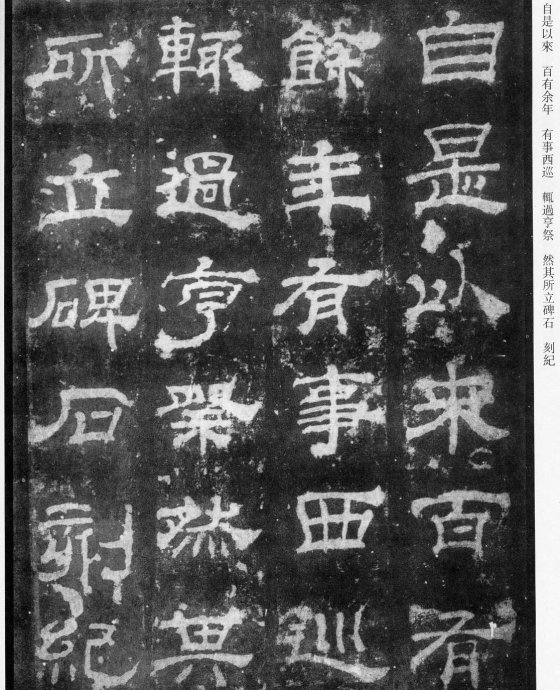 自是以來 百有余年 有事西巡 輒過亨祭 然其所立碑石 刻紀
自是以來百有
餘年有事西巡
輒過亨祭然其
所立碑石刻紀